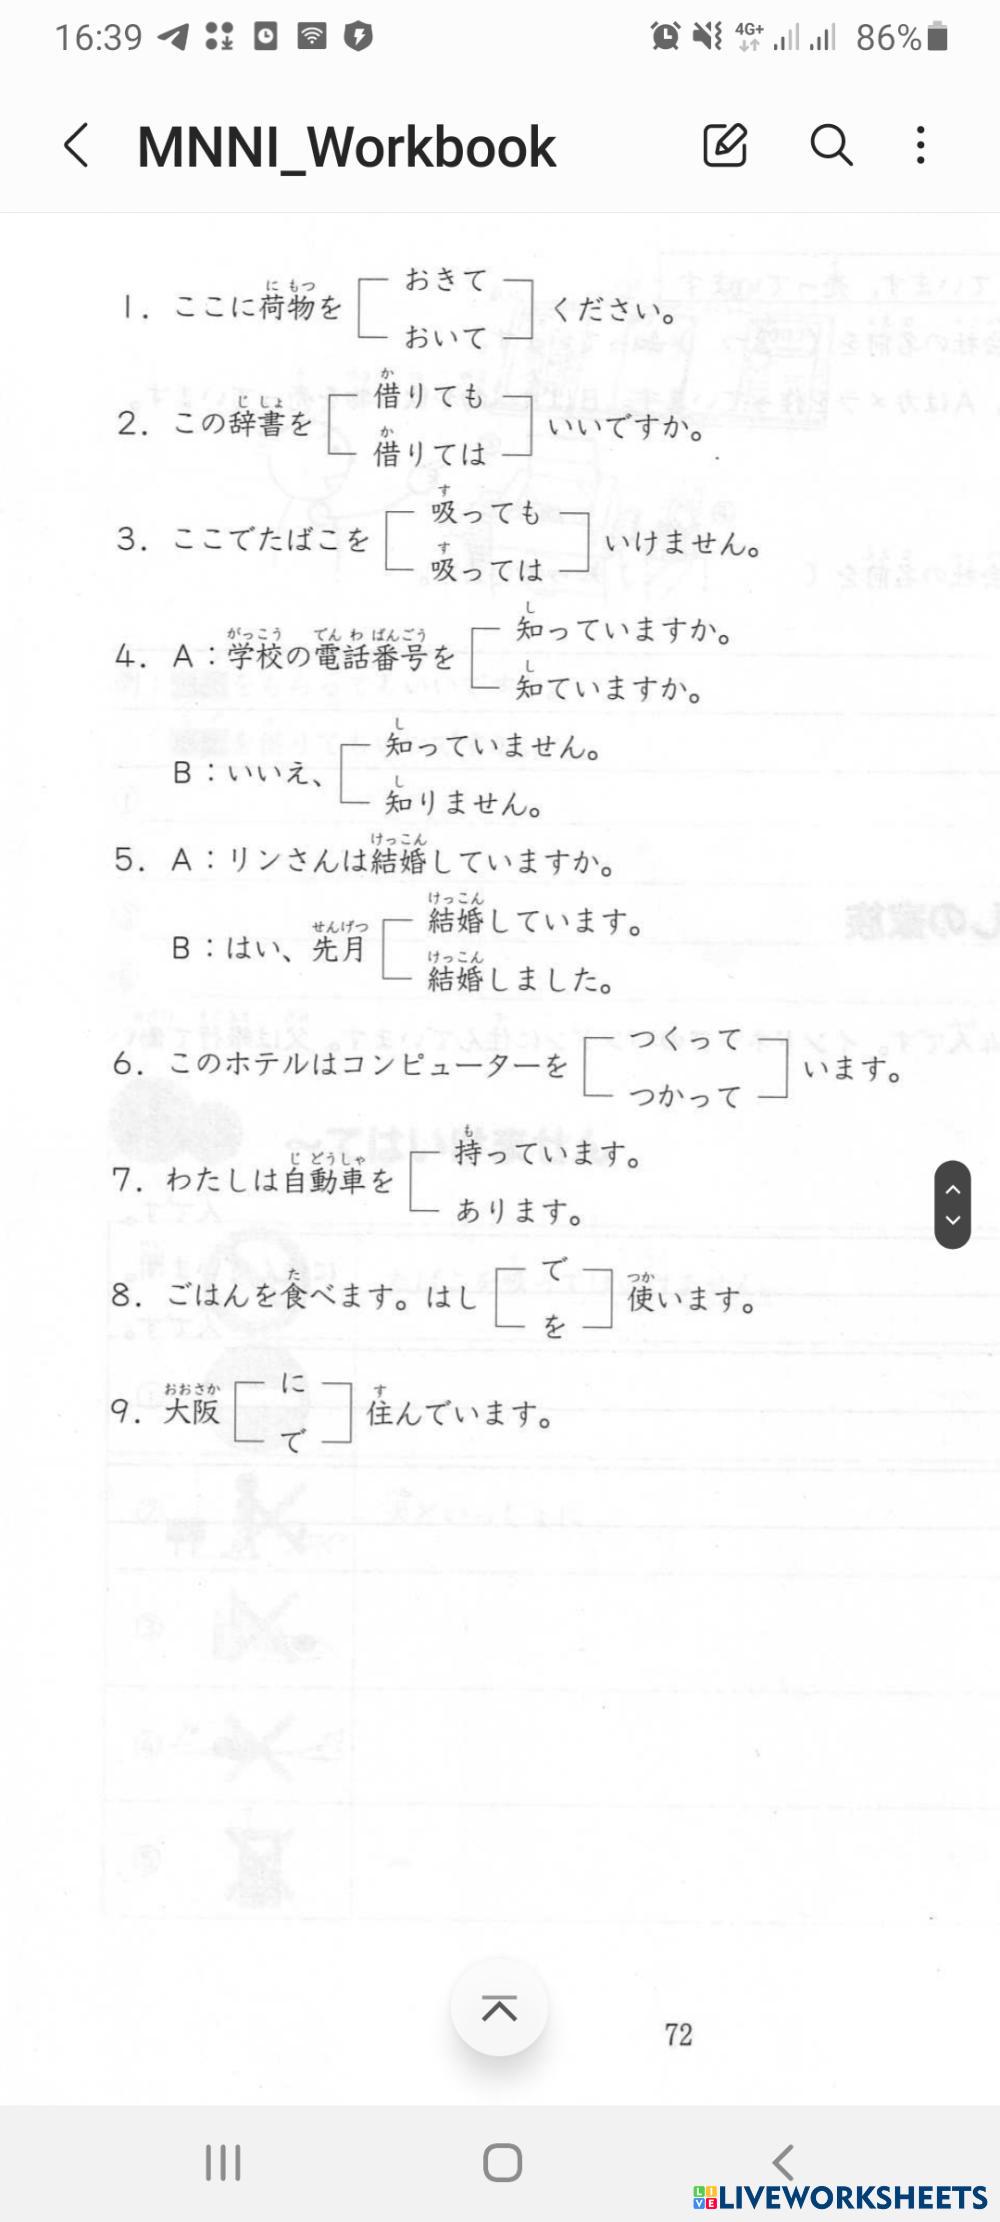 16:39
4G+
86%
MNNI_Workbook
1. ここに荷物を
にもつ
おきて
おいて
ください。
2. この辞書を
じしょ
借りても
か
借りては
か
いいですか。
3. ここでたばこを
吸っても
す
吸っては
す
いけません。
4. A:学校の電話番号を
がっこう でんわばんごう
知っていますか。
し
知ていますか。
し
B:いいえ、
知っていません。
し
知りません。
し
5. A:リンさんは結婚していますか。
けっこん
B:はい、先月
せんげつ
結婚しています。
けっこん
結婚しました。
けっこん
6. このホテルはコンピューターを
つくって
つかって
います。
7. わたしは自動車を
じどうしゃ
持っています。
も
あります。
8. ごはんを食べます。はし
た
で
を
使います。
つか
9. 大阪
おおさか
に
で
住んでいます。
す
72
LIVEWORKSHEETS